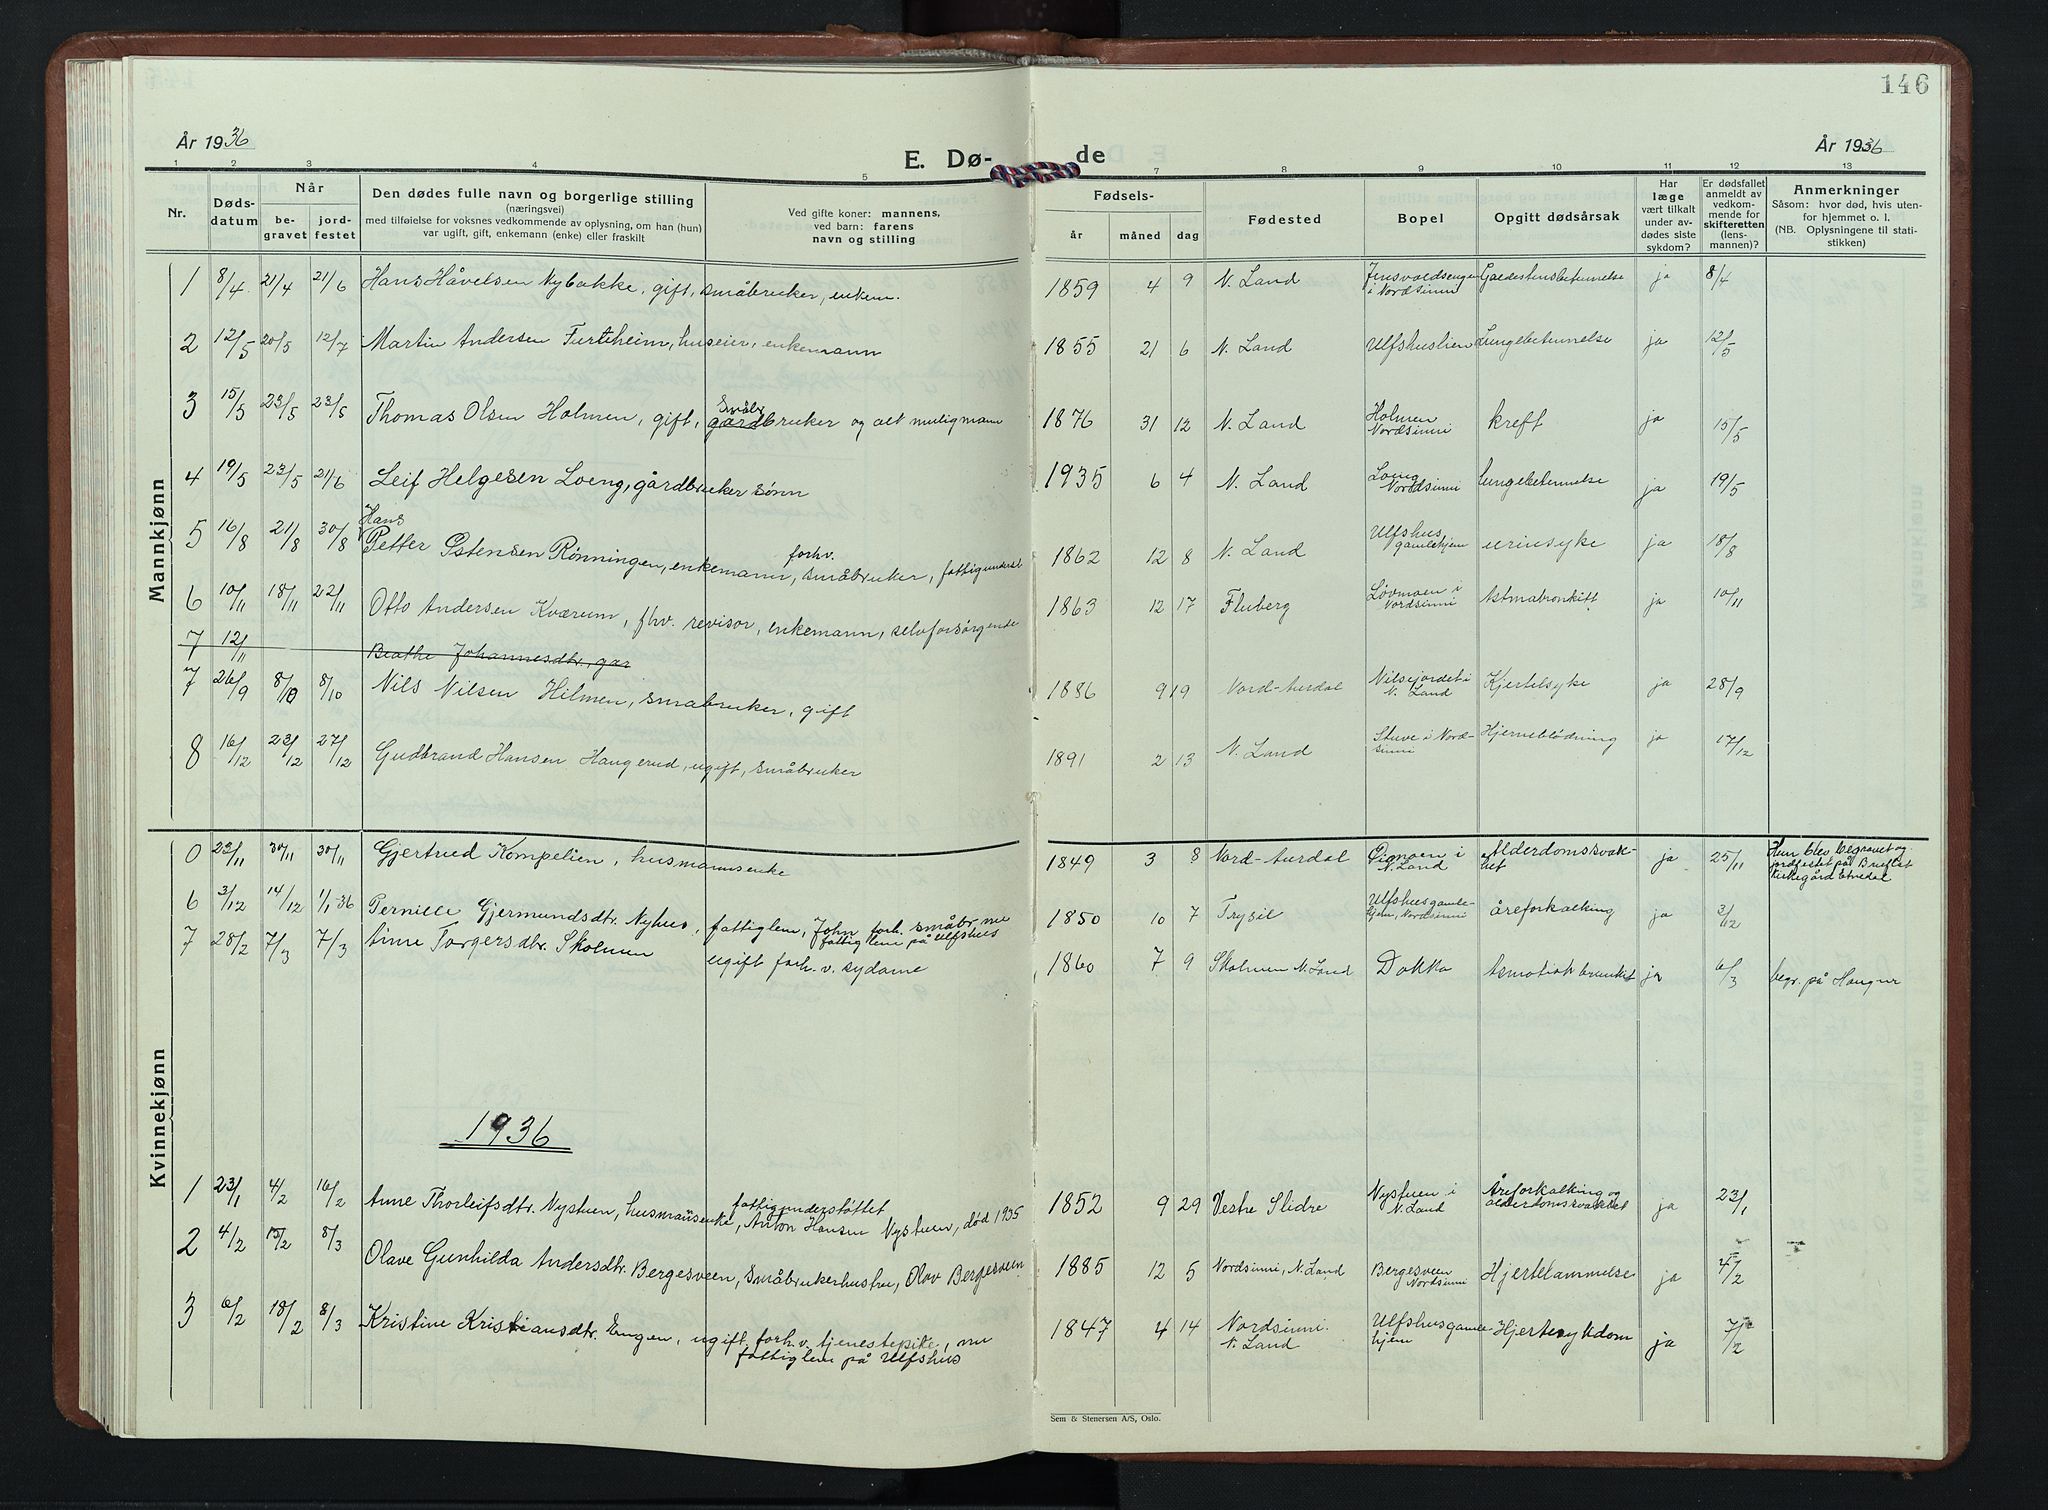 146
År 1936
E. Dø-
de
År 1936
1 2 3 4 5 7 8 9 10 11 12 13
Nr.
Døds-
datum
Når
be-
gravet
jord-
festet
Den dødes fulle navn og borgerlige stilling
(næringsvei)
med tilføielse for voksnes vedkommende av oplysning, om han (hun)
var ugift, gift, enkemann (enke) eller fraskilt
Ved gifte koner: mannens,
ved barn: farens
navn og stilling
Fødsels-
år måned dag
Fødested
Bopel
Opgitt dødsårsak
Har
læge
vært tilkalt
under av-
dødes siste
sykdom?
Er dødsfallet
anmeldt av
vedkom-
mende for
skifteretten
(lens-
mannen)?
Anmerkninger
Såsom: hvor død, hvis uten-
for hjemmet o. l.
(NB. Oplysningene til stati-
stikken)
Mannkjønn
1 8/4 21/4 21/6 Hans Håvelsen Nybakke, gift, småbruker, enkem. 1859 4 9 N. Land Jensvoldsengen i Nordsinni Galdestensbetennelse ja 8/4
2 12/5 20/5 12/7 Martin Andersen Furtheim, huseier, enkemann 1855 21 6 N. Land Ulfshuslien Lungebetennelse ja 12/5
3 15/5 23/5 23/5 Thomas Olsen Holmen, gift, småbr gårdbruker og alt muligmann 1876 31 12 N. Land Holmen Nordsinni kreft ja 15/5
4 19/5 23/5 21/6 Leif Helgesen Loeng, gårdbruker sønn 1935 6 4 N. Land Loeng Nordsinni lungebetennelse ja 19/5
5 16/8 21/8 30/8 Hans Petter Ostensen Rønningen, enkemann, forhv. småbruker, fattigunderst 1862 12 8 N. Land Ulfshus gamlehjem urinsyke ja 18/8
6 10/11 18/11 22/11 Otto Andersen Kværum, fhv. revisor, enkemann, selvforsørgende 1863 12 17 Fluberg Løvmoen i Nordsinni Astmabronkitt ja 10/11
7 12/11 Beathe Johannesdtr, gar
7 26/9 8/10 8/10 Nils Nilsen Hilmen, småbruker, gift 1886 9 19 Nord-Aurdal Nilsejordet i N. Land Kjertelsyke ja 28/9
8 16/12 23/12 27/12 Gudbrand Hansen Haugerud, ugift, småbruker 1891 2 13 N. Land Stuve i Nord-sinni Hjerneblødning ja 17/12
Kvinnekjønn
0 23/11 30/11 30/11 Gjertrud Kompelien, husmannsenke 1849 3 8 Nord-Aurdal N. Land Alderdomssvak-het ja 25/11 Hun blev begravet og jordfestet på Bruflat kirkegård Etnedal
6 3/12 14/12 1/1-36 Pernille Gjermundsdtr. Nyhus, fattiglem, John forh. småbr. nu fattiglem på Ulfshus 1850 10 7 Trysil Ulfshusgamle-hjem, Nordsinni åreforkalking ja 3/12
7 28/2 7/3 7/3 Anne Torgersdtr. Skolmen ugift forh. v. sydame 1860 7 9 Skolmen N. Land Dokka Asmatisk brunkit ja 6/3 begr. på Haugner
1936
1 23/1 4/2 16/2 Anne Thorleifsdtr. Nystuen, husmannsenke, fattigunderstøttet Anton Hansen Nystuen, død 1935 1852 9 29 Vestre Slidre Nystuen i N. Land Åreforkalking og alderdomssvakhet ja 23/1
2 4/2 15/2 8/3 Olave Gunhilda Andersdtr. Bergesveen, småbrukerhustru, Olav Bergesveen 1885 12 5 Nordsinni, N. Land Bergesveen Nordsinni Hjertelammelse ja 4/2
3 6/2 18/2 8/3 Kristine Kristiansdtr. Engen, ugift, forh. v. tjenestepike, nu fattiglem på Ulfshus 1847 4 14 Nordsinni. N. Land Ulfshusgamle-hjem Hjertesykdom ja 7/2
Sem & Stenersen A/S, Oslo.